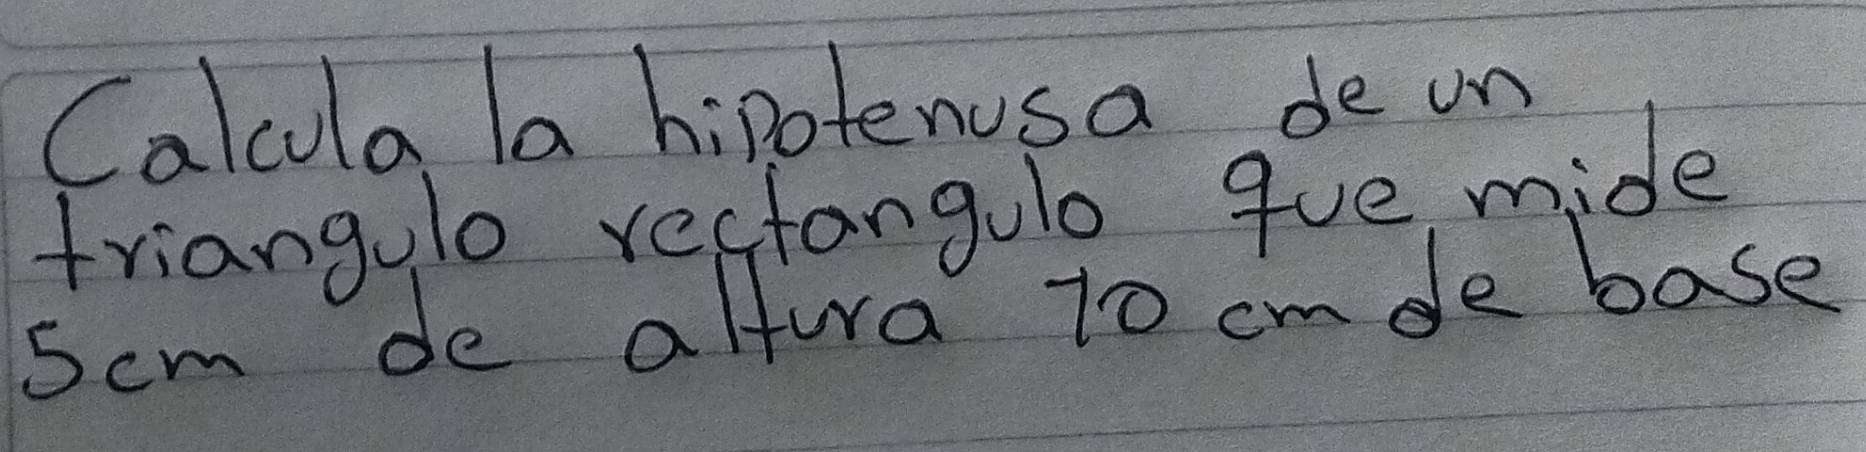 Calcula la hipotenusa de un
triangulo rectangulo que mide
5cm de altura 10 cm de base